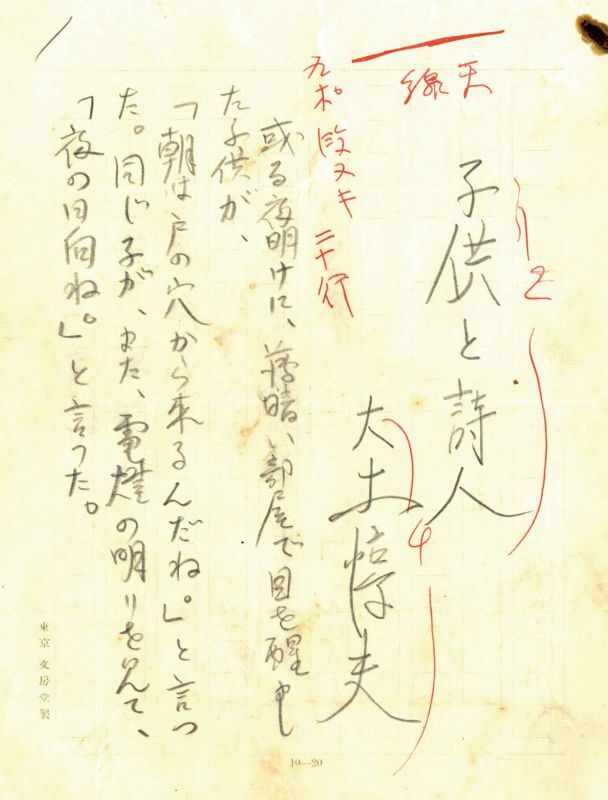 天
線
2
子供と詩人
4
大木惇夫
五ポ 段ヌキ 二十行
或る夜明けに、薄暗い部屋で目を醒まし
た子供が、
「朝は戸の穴から来るんだね。」と言つ
た。同じ子が、また、電燈の明りを見て、
「夜の日向ね。」と言つた。
東京 文房堂製
10—20